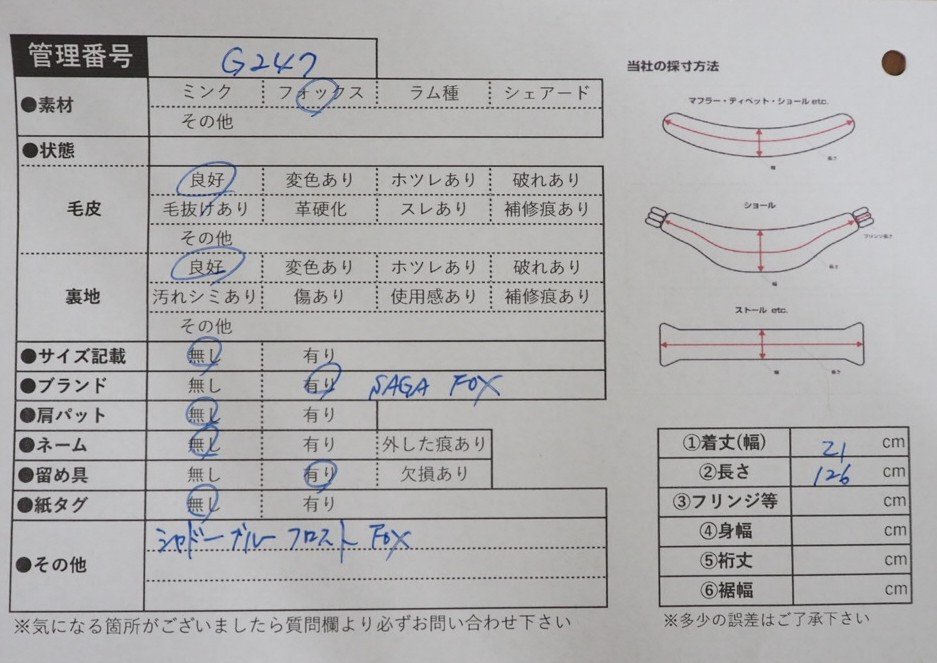 管理番号 G247
●素材 ミンク フォックス ラム種 シェアード
その他
●状態
毛皮 良好 変色あり ホツレあり 破れあり
毛抜けあり 革硬化 スレあり 補修痕あり
その他
裏地 良好 変色あり ホツレあり 破れあり
汚れシミあり 傷あり 使用感あり 補修痕あり
その他
●サイズ記載 無し 有り
●ブランド 無し 有り SAGA FOX
●肩パット 無し 有り
●ネーム 無し 有り 外した痕あり
●留め具 無し 有り 欠損あり
●紙タグ 無し 有り
●その他 シャドーブルーフロスト FOX
※気になる箇所がございましたら質問欄より必ずお問い合わせ下さい
当社の採寸方法
マフラー・ティペット・ショール etc.
長さ
幅
ショール
フリンジ長さ
長さ
幅
ストール etc.
幅
長さ
①着丈(幅) 21 cm
②長さ 126 cm
③フリンジ等 cm
④身幅 cm
⑤裄丈 cm
⑥裾幅 cm
※多少の誤差はご了承下さい